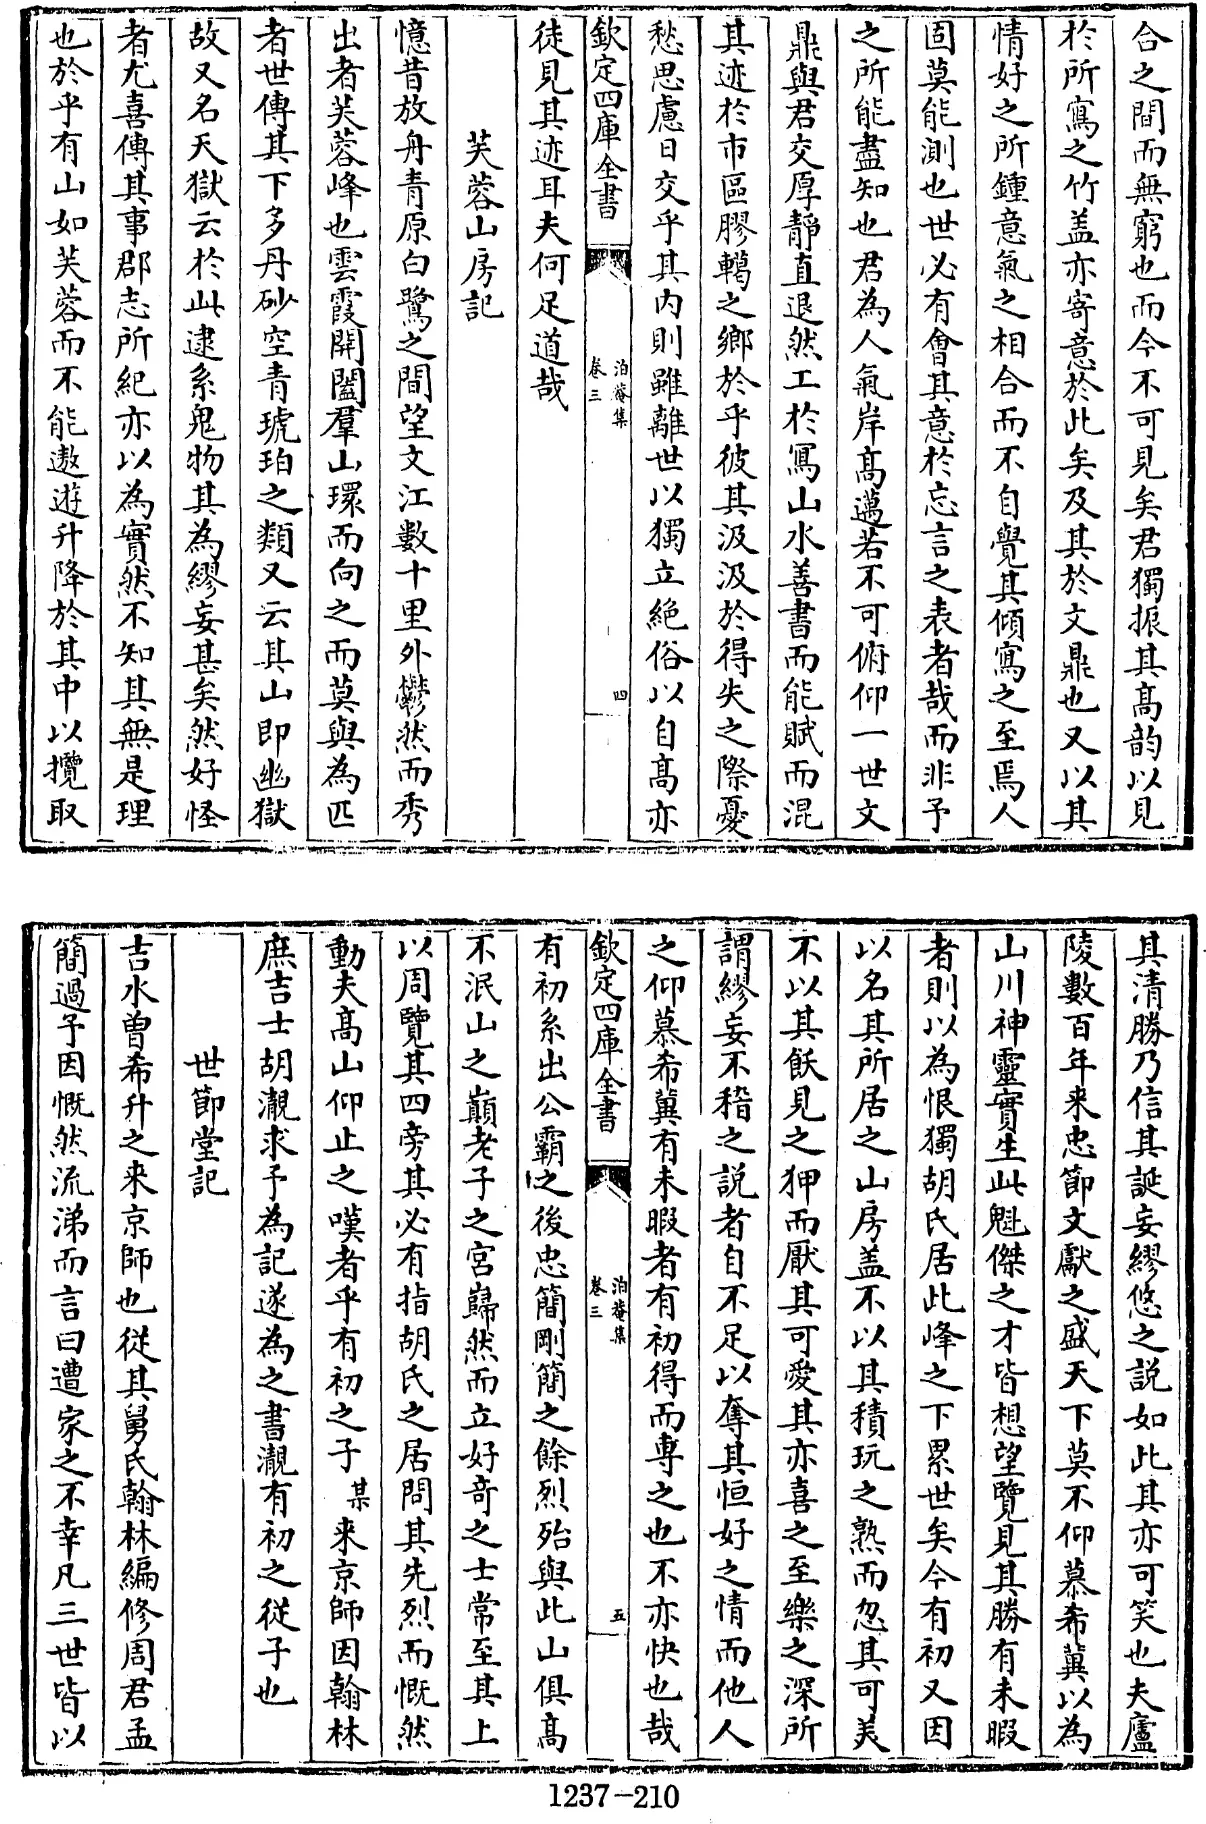 合之間而無窮也而今不可見矣君獨振其高韵以見
於所寫之竹盖亦寄意於此矣及其於文鼎也又以其
情好之所鍾意氣之相合而不自覺其傾寫之至焉人
固莫能測也世必有會其意於忘言之表者哉而非予
之所能盡知也君為人氣岸高邁若不可俯仰一世文
鼎與君交厚靜直退然工於寫山水善書而能賦而混
其迹於市區膠轕之鄉於乎彼其汲汲於得失之際憂
愁思慮日交乎其内則雖離世以獨立絶俗以自高亦
欽定四庫全書
泊菴集
卷三
四
徒見其迹耳夫何足道哉
芙蓉山房記
憶昔放舟青原白鷺之間望文江數十里外鬱然而秀
出者芙蓉峰也雲霞開闔羣山環而向之而莫與為匹
者世傳其下多丹砂空青琥珀之類又云其山即幽獄
故又名天獄云於此逮系鬼物其為繆妄甚矣然好怪
者尤喜傳其事郡志所紀亦以為實然不知其無是理
也於乎有山如芙蓉而不能遨遊升降於其中以攬取
其清勝乃信其誕妄繆悠之説如此其亦可笑也夫廬
陵數百年来忠節文獻之盛天下莫不仰慕希冀以為
山川神靈實生此魁傑之才皆想望覽見其勝有未暇
者則以為恨獨胡氏居此峰之下累世矣今有初又因
以名其所居之山房盖不以其積玩之熟而忽其可美
不以其飫見之狎而厭其可愛其亦喜之至樂之深所
謂繆妄不稽之説者自不足以奪其恒好之情而他人
之仰慕希冀有未暇者有初得而専之也不亦快也哉
欽定四庫全書
泊菴集
卷三
五
有初系出公霸之後忠簡剛簡之餘烈殆與此山俱高
不泯山之巔老子之宮巋然而立好奇之士常至其上
以周覽其四旁其必有指胡氏之居問其先烈而慨然
動夫高山仰止之嘆者乎有初之子某来京師因翰林
庶吉士胡瀙求予為記遂為之書瀙有初之從子也
世節堂記
吉水曽希升之来京師也從其舅氏翰林編修周君孟
簡過予因慨然流涕而言曰遭家之不幸凡三世皆以
1237-210